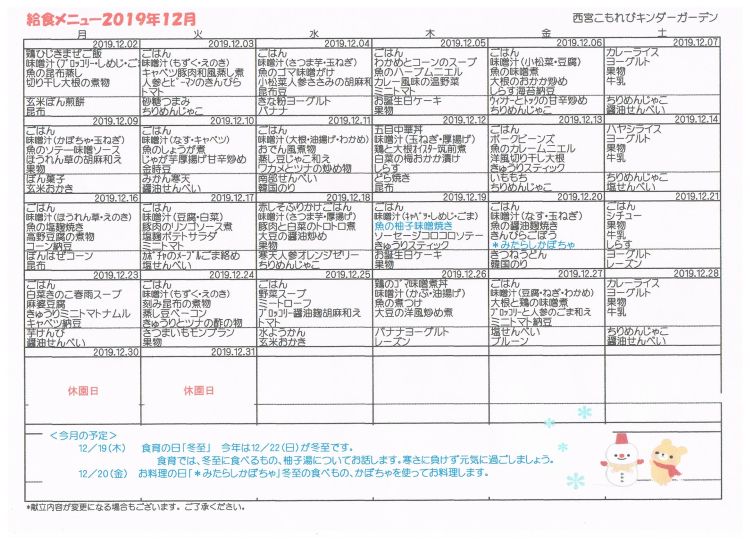 給食メニュー2019年12月
西宮こもれびキンダーガーデン
月 火 水 木 金 土
2019.12.02 2019.12.03 2019.12.04 2019.12.05 2019.12.06 2019.12.07
鶏ひじきまぜご飯 ごはん ごはん ごはん ごはん カレーライス
味噌汁(ブロッコリー・しめじ・ご 味噌汁(もずく・えのき) 味噌汁(さつま芋・玉ねぎ) わかめとコーンのスープ 味噌汁(小松菜・豆腐) ヨーグルト
魚の昆布蒸し キャベツ豚肉和風蒸し煮 魚のゴマ味噌がけ 魚のハーブムニエル 魚の味噌煮 果物
切り干し大根の煮物 人参とピーマンのきんぴら 小松菜人参ささみの胡麻和 カレー風味の温野菜 大根のおかか炒め 牛乳
トマト 昆布豆 ミニトマト しらす海苔納豆
玄米ぽん煎餅 砂糖つまみ きな粉ヨーグルト お誕生日ケーキ ウィンナーとトックの甘辛炒め ちりめんじゃこ
昆布 ちりめんじゃこ バナナ 果物 果物 醤油せんべい
2019.12.09 2019.12.10 2019.12.11 2019.12.12 2019.12.13 2019.12.14
ごはん ごはん ごはん 五目中華丼 ごはん ハヤシライス
味噌汁(かぼちゃ・玉ねぎ) 味噌汁(なす・キャベツ) 味噌汁(大根・油揚げ・わかめ) 味噌汁(玉ねぎ・厚揚げ) ポークビーンズ ヨーグルト
魚のソテー味噌ソース 魚のしょうが煮 おでん風煮物 鶏と大根オイスター筑前煮 魚のカレームニエル 果物
ほうれん草の胡麻和え じゃが芋厚揚げ甘辛炒め 蒸し豆じゃこ和え 白菜の梅おかか漬け 洋風切り干し大根 牛乳
果物 金時豆 ワカメとツナの炒め物 しらす きゅうりスティック
ぽん菓子 みかん寒天 南部せんべい どら焼き いももち ちりめんじゃこ
玄米おかき 醤油せんべい 韓国のり 昆布 ちりめんじゃこ 塩せんべい
2019.12.16 2019.12.17 2019.12.18 2019.12.19 2019.12.20 2019.12.21
ごはん ごはん 赤しそふりかけごはん ごはん ごはん ごはん
味噌汁(ほうれん草・えのき) 味噌汁(豆腐・白菜) 味噌汁(さつま芋・厚揚げ) 味噌汁(キャベツ・しめじ・ごま) 味噌汁(なす・玉ねぎ) シチュー
魚の塩麹焼き 豚肉のリンゴソース煮 豚肉と白菜のトロトロ煮 魚の柚子味噌焼き 魚の醤油麹焼き 果物
高野豆腐の煮物 塩麹ポテトサラダ 大豆の醤油炒め ソーセージコロコロソテー きんぴらごぼう 牛乳
コーン納豆 ミニトマト 果物 きゅうりスティック *みたらしかぼちゃ しらす
ぽんはぜコーン カボチャのメープルごま絡め 寒天人参オレンジゼリー お誕生日ケーキ きつねうどん ヨーグルト
昆布 塩せんべい ちりめんじゃこ 果物 韓国のり レーズン
2019.12.23 2019.12.24 2019.12.25 2019.12.26 2019.12.27 2019.12.28
ごはん ごはん ごはん 鶏のゴマ味噌煮丼 ごはん カレーライス
白菜きのこ春雨スープ 味噌汁(もずく・えのき) 野菜スープ 味噌汁(かぶ・油揚げ) 味噌汁(豆腐・ねぎ・わかめ) ヨーグルト
麻婆豆腐 刻み昆布の煮物 ミートローフ 魚の煮つけ 大根と鶏の味噌煮 果物
きゅうりミニトマトナムル 蒸し豆ベーコン ブロッコリー醤油麹胡麻和え 大豆の洋風炒め煮 ブロッコリーと人参のごま和え 牛乳
キャベツ納豆 きゅうりとツナの酢の物 トマト ミニトマト納豆
芋けんぴ さつまいもモンブラン 水ようかん バナナヨーグルト 塩せんべい ちりめんじゃこ
醤油せんべい 果物 玄米おかき レーズン プルーン 醤油せんべい
2019.12.30 2019.12.31
休園日 休園日
<今月の予定>
12/19(木) 食育の日「冬至」 今年は12/22(日)が冬至です。
食育では、冬至に食べるもの、柚子湯についてお話します。寒さに負けず元気に過ごしましょう。
12/20(金) お料理の日「*みたらしかぼちゃ」冬至の食べもの、かぼちゃを使ってお料理します。
*献立内容が変更になる場合もございます。ご了承ください。